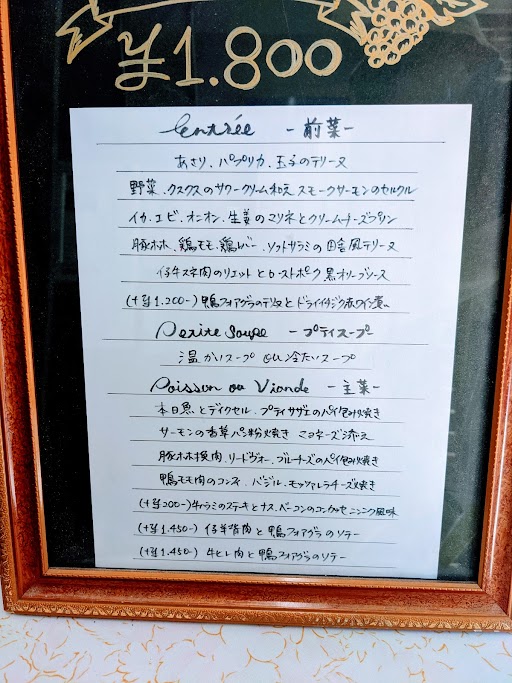 ¥1.800
Entrée -前菜-
あさり、パプリカ、玉子のテリーヌ
野菜、クスクスのサワークリーム和え スモークサーモンのセルクル
イカ、エビ、オニオン、生姜のマリネとクリームチーズプリン
豚ホホ、鶏モモ、鶏レバー、ソフトサラミの田舎風テリーヌ
仔牛スネ肉のリエットとローストポーク 黒オリーブソース
(+¥1.200-) 鴨フォアグラのテリーヌとドライイチジク赤ワイン煮
Petite Soupe -プティスープ-
温かいスープ ou 冷たいスープ
Poisson ou Viande -主菜-
本日魚とデイクセル、プティサザエのパイ包み焼き
サーモンの香草パン粉焼き マヨネーズ添え
豚ホホ挽肉、リードヴォー、ブルーチーズのパイ包み焼き
鴨モモ肉のコンフィ、バジル、モッツァレラチーズ焼き
(+¥200-)牛ハラミのステーキとナス、ベーコンのコンカッセ ニンニク風味
(+¥1.450-) 仔羊背肉と鴨フォアグラのソテー
(+¥1.450-) 牛ヒレ肉と鴨フォアグラのソテー